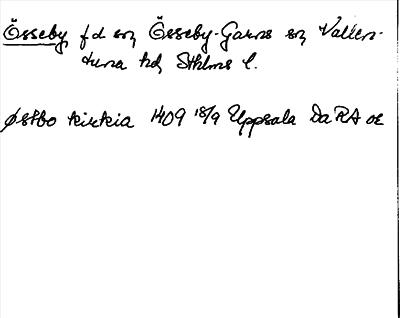 Össeby fd sn, Össeby-Garns sn, Vallen-
tuna hd, Sthlms l.
Østbo kirkia 1409 18/9 Uppsala Da RA or